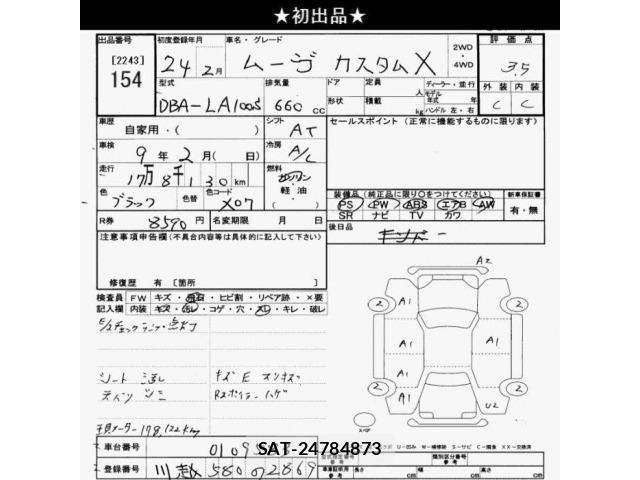 ★初出品★
出品番号
[2243]
154
初度登録年月
24年 2月
車名・グレード
ムーヴ カスタムX
2WD
・
4WD
評価点
3.5
外装 内装
C C
型式
DBA-LA100S
排気量
660 cc
ドア
形状
定員
人
積載
kg
ディーラー・並行
モデル
年式 年
ハンドル 左・右
車歴
自家用・( )
シフト
AT
セールスポイント(正常に機能するものに限ります)
車検
9年 2月( 日)
冷房
A/C
走行
17万8千130km
燃料
ガソリン
軽油
( )
色
ブラック
色替
色コード
X07
装備品(純正品に限り○をつけてください)
新車保証書
PS PW ABS エアB AW
SR ナビ TV カワ
有・無
R券
8590円
名変期限 月 日
後日品
注意事項申告欄(不具合内容等は具体的に記入して下さい)
修復歴 有 [箇所 ]
検査員
記入欄
FW キズ・飛石・ヒビ割・リペア跡・×要
内装 キズ・汚レ・コゲ・穴・スレ・キレ・破レ
シート
キズ E
A2
2 A1 2
A1 A1
A1
2 A1 2
U2
車台番号
登録番号
川越 580
SAT-24784873
型式指定番号
参考
類別区分番号
参考
車庫証明用
参考
長さ cm
幅 cm
高さ cm